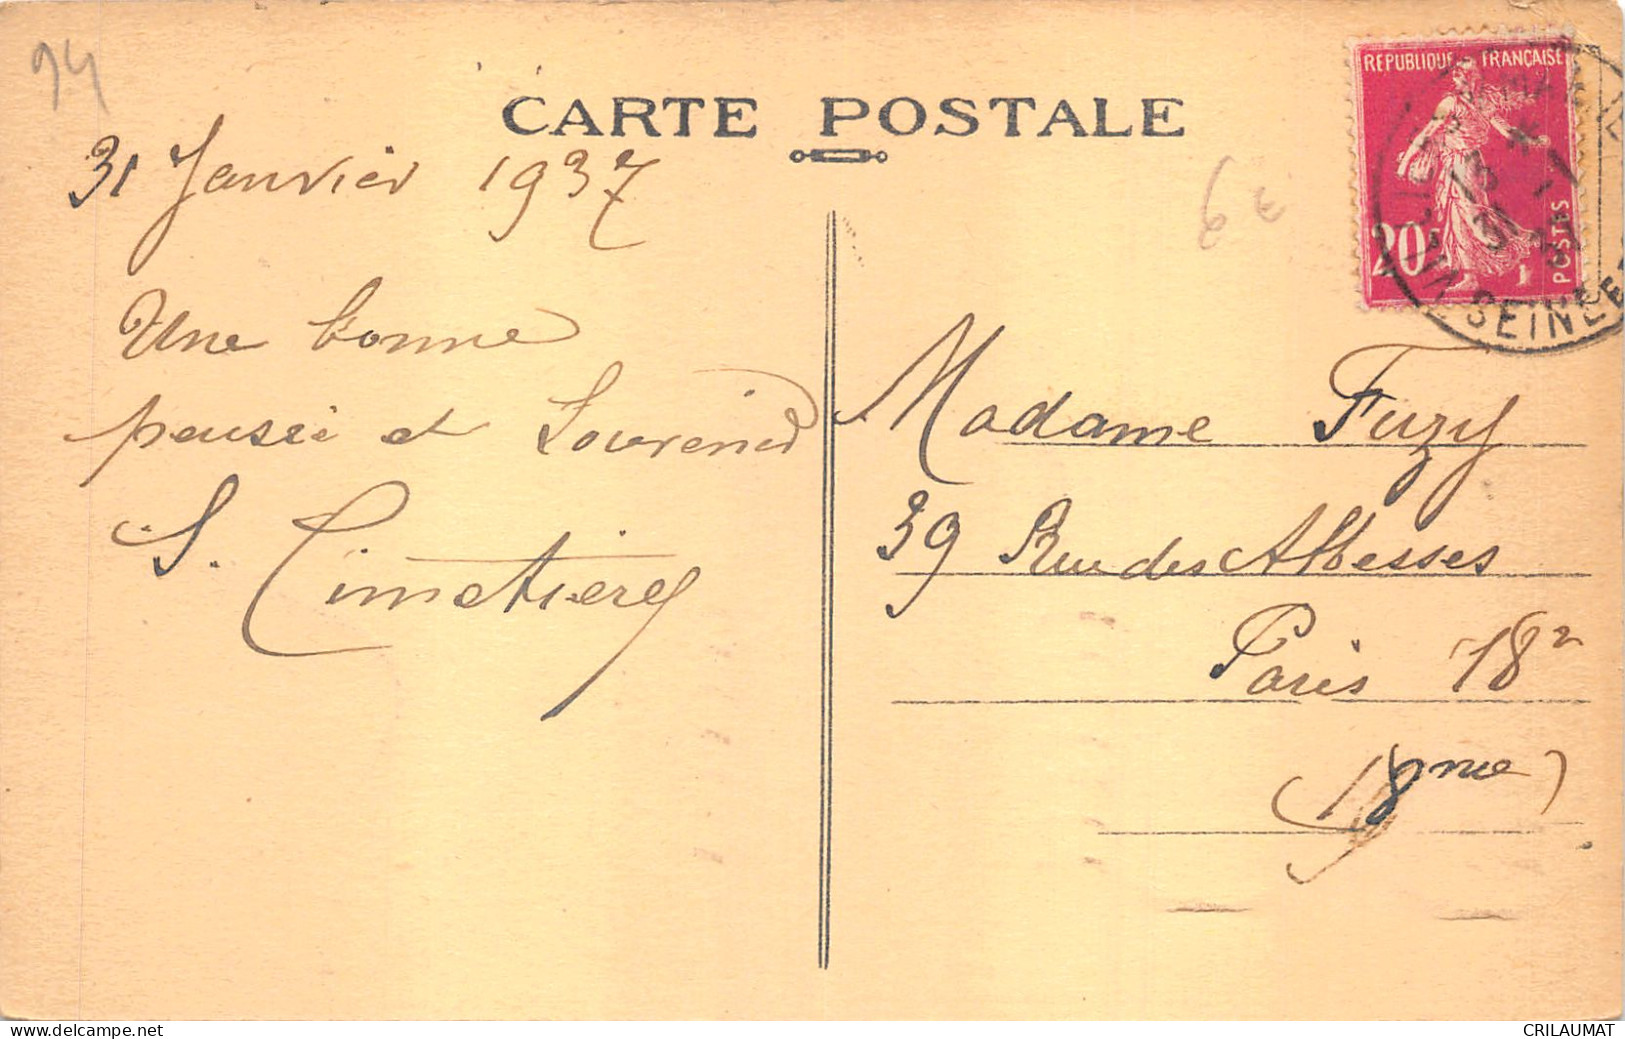 94
CARTE POSTALE
31 Janvier 1937
Une bonne
pensée et Souvenir
S. Cimetierey
6€
REPUBLIQUE FRANÇAISE
20c
POSTES
SEINE
Madame Fuzy
39 Rue des Abbesses
Paris 18e
(18me)
www.delcampe.net
CRILAUMAT